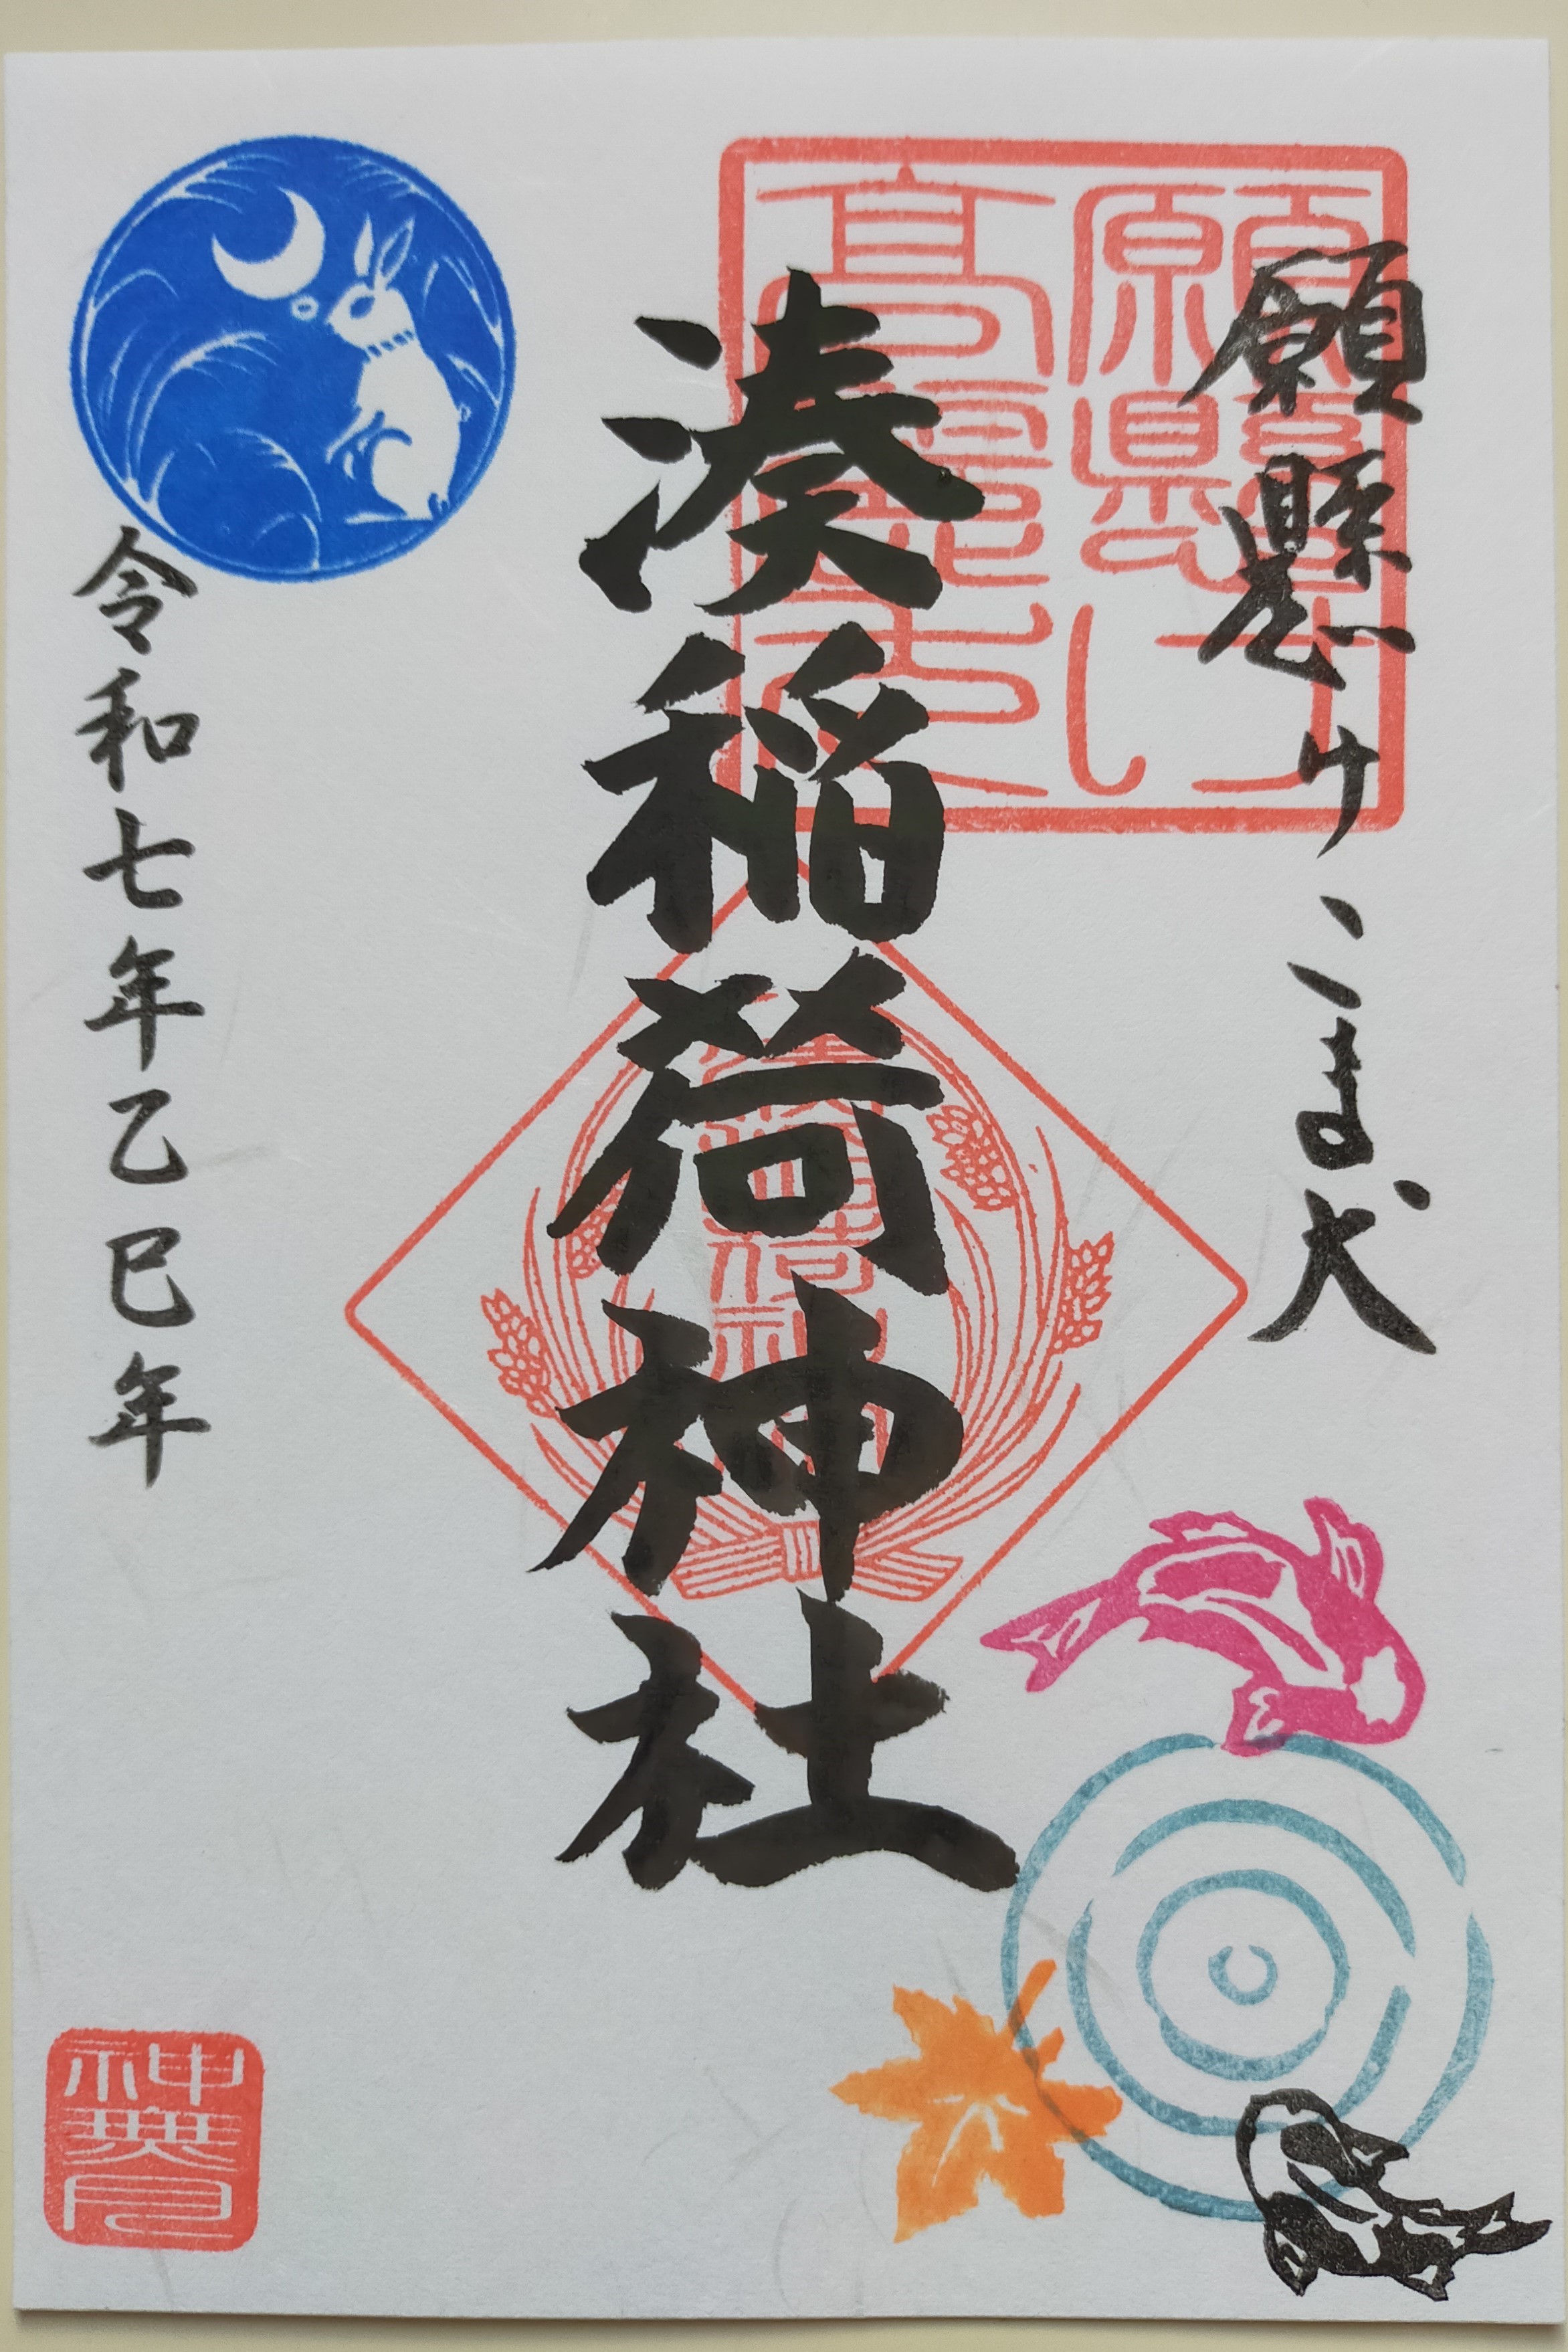 願懸けこま犬
湊稲荷神社
令和七年乙巳年
神無月